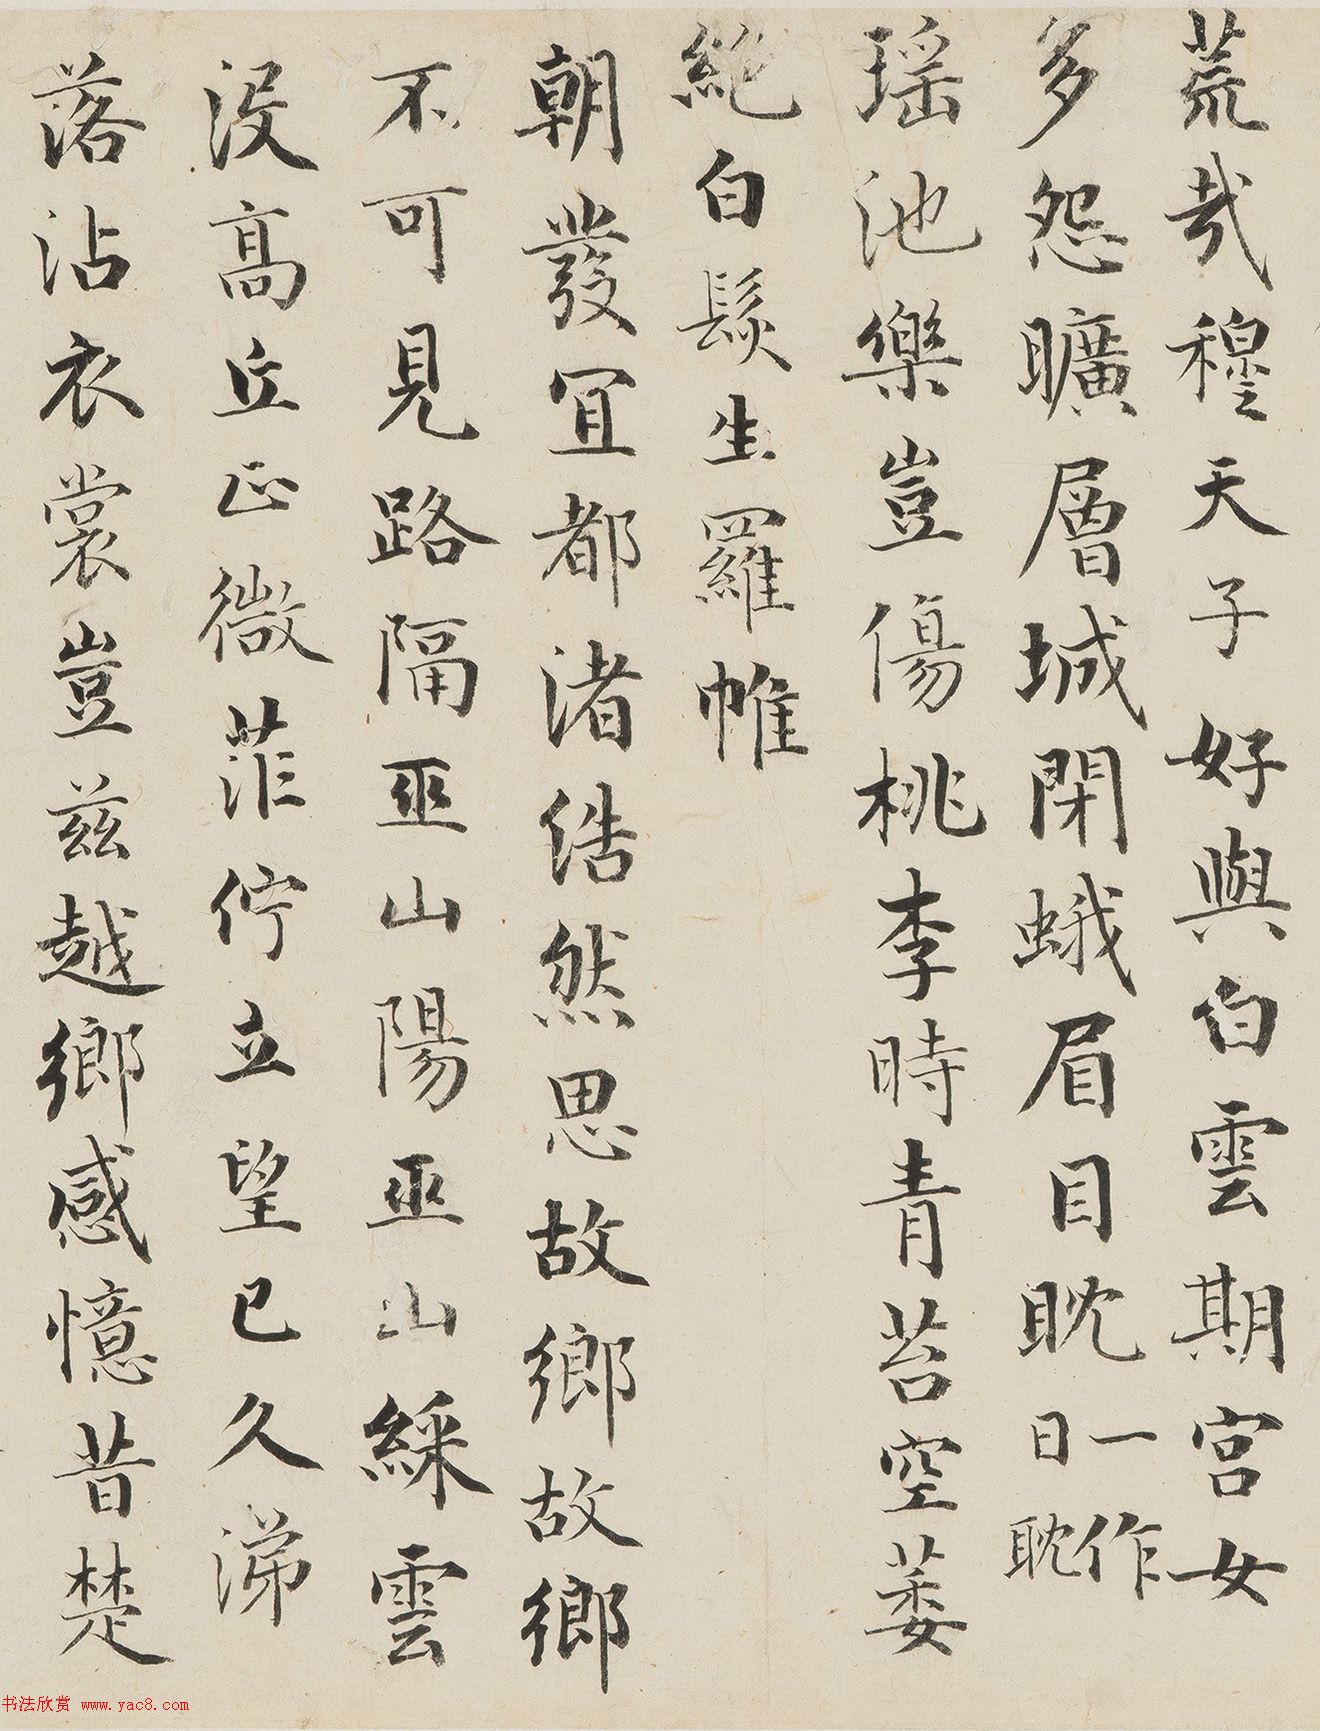 荒哉穆天子好與白雲期宮女
多怨曠層城閉蛾眉目眈一作日眈
瑶池樂豈傷桃李時青苔空萎
絶白髮生羅帷
朝發宜都渚浩然思故鄉故鄉
不可見路隔巫山陽巫山綵雲
没高丘正微茫佇立望已久涕
落沾衣裳豈兹越鄉感憶昔楚
书法欣赏 www.yac8.com